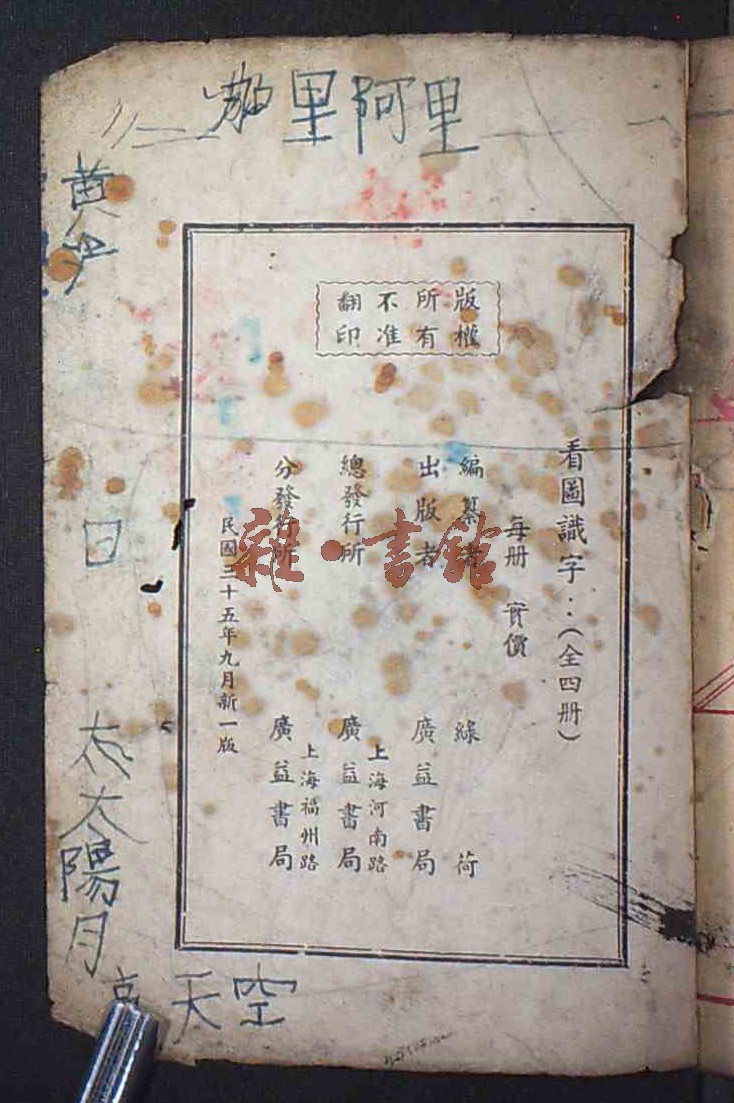 里阿里
黄
版權
所有
不准
翻印
看圖識字：（全四册）
每册 實價
編纂者 綠荷
出版者 廣益書局
上海河南路
總發行所 廣益書局
上海福州路
分發行所 廣益書局
民國三十五年九月新一版
雜·書館
日
太陽月
天空